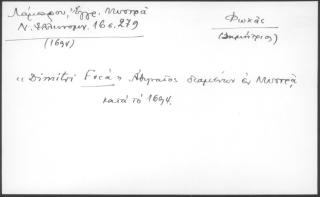 Λάμπρου, Ἔγγρ. Μυστρᾶ
Ν. Ἑλληνομν. 16 σ. 279
(1694)
Φωκᾶς
(Δημήτριος)
"Dimitri Focà" Ἀθηναῖος διαμένων ἐν Μυστρᾷ
κατὰ τὸ 1694.